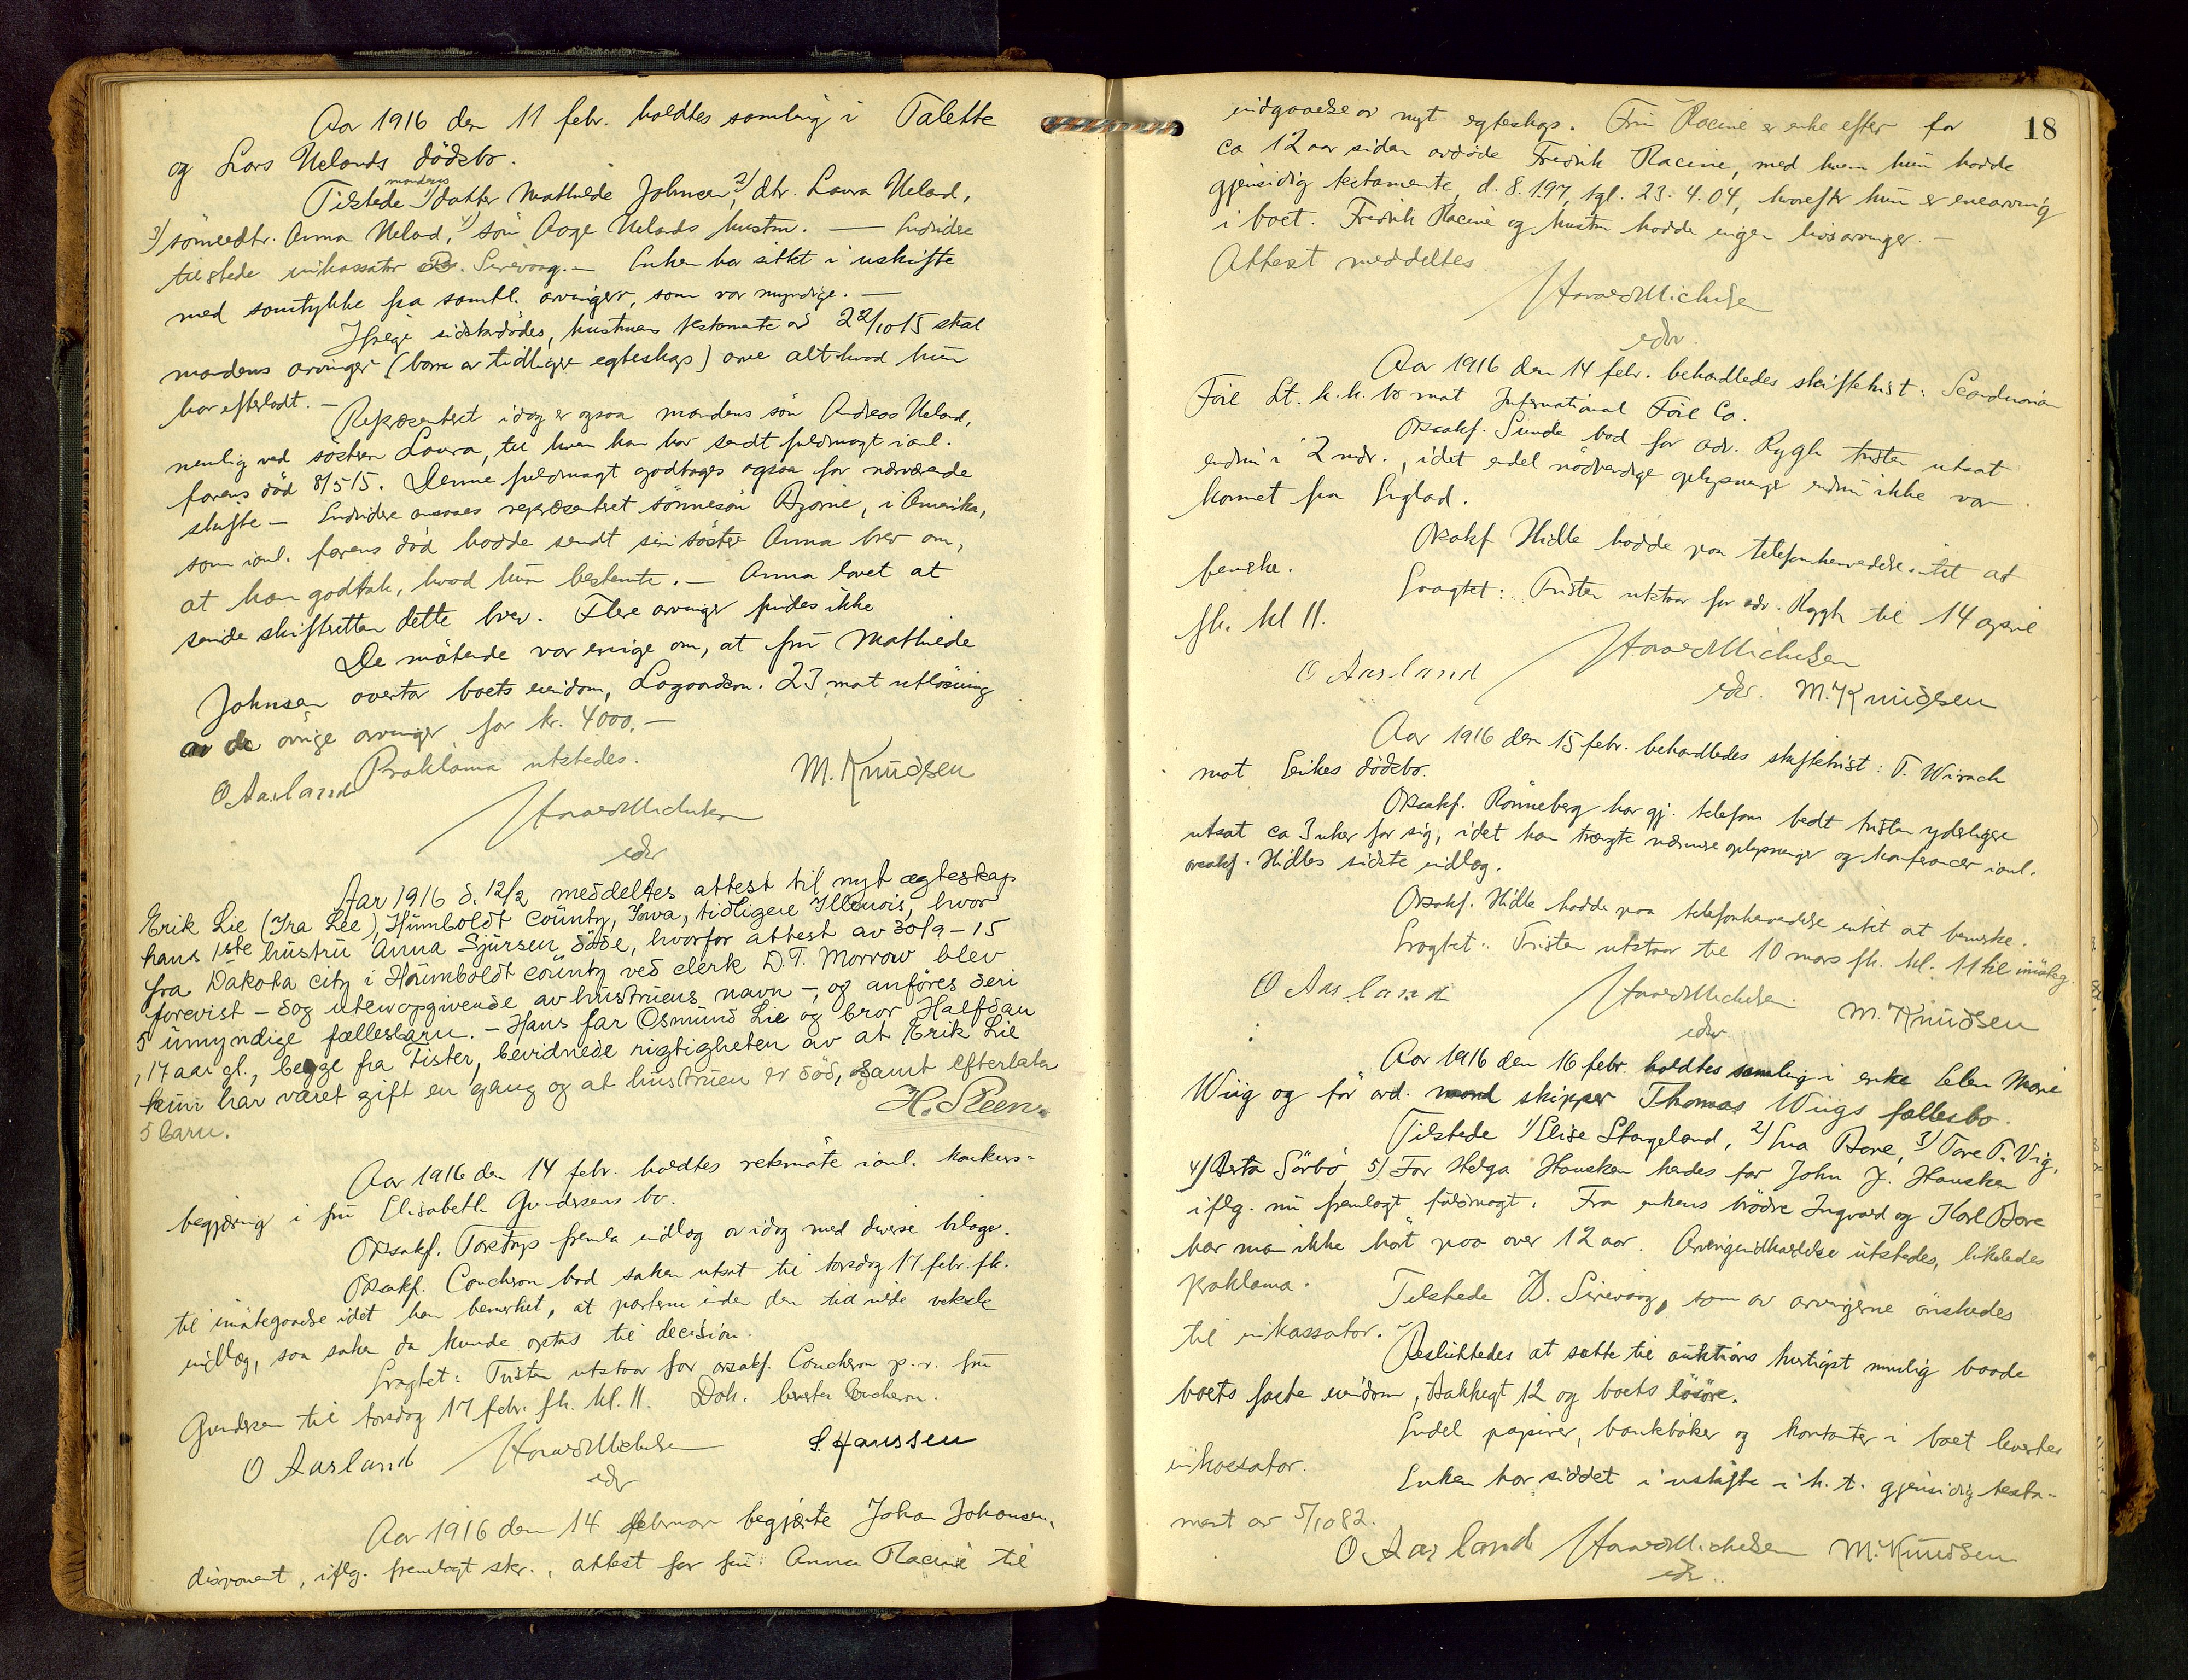 Aar 1916 den 11 febr. holdtes samling i Talette
og Lars Uelands dödsbo.
mandens
Tilstede 1/ datter Mathilde Johnsen, 2/ dtr. Laura Ueland,
3/ sönnedtr. Anna Ueland, 4/ sön Aage Uelands hustru. — Endvidere
tilstede inkassator B. Sirevaag. — Enken har sittet i uskifte
med samtykke fra samtl. arvinger, som var myndige. —
Ifölge sidstavdödes, hustruens testamente av 22/10 15 skal
mandens arvinger (barn av tidligere egteskap) arve alt hvad hun
har efterladt. —
Repræsentert idag er ogsaa mandens sön Andreas Ueland,
nemlig ved söstren Laura, til hvem han har sendt fuldmagt i anl.
farens död 8/5 15. Denne fuldmagt godtages ogsaa for nærværende
skifte — Endvidere ansaaes repræsentert sönnesön Bjarne, i Amerika,
som i anl. farens död hadde sendt sin söster Anna brev om,
at han godtok, hvad hun bestemte. — Anna lovet at
sende skifteretten dette brev. Flere arvinger findes ikke
De mötende var enige om, at fru Mathilde
Johnsen overtar boets eiendom, Lagaardsv. 23, mot utlösning
av de övrige arvinger for kr. 4000.—
Proklama utstedes.
O Aarland M. Knudsen
Harald Michelsen
edsv
Aar 1916 d. 12/2 meddeltes attest til nyt ægteskap
Erik Lie (Ira Lee), Humboldt county, Iowa, tidligere Illinois, hvor
hans 1ste hustru Anna Sjursen döde, hvorfor attest av 30/9-15
fra Dakota city i Humboldt county ved clerk D.T. Morrow blev
forevist – dog uten opgivende av hustruens navn –, og anföres deri
5 umyndige fællesbarn. – Hans far Osmund Lie og bror Halfdan
, 17 aar gl., begge fra Tister, bevidnede rigtigheten av at Erik Lie
kun har været gift en gang og at hustruen er död, samt efterlater
5 barn.
H. Steen.
Aar 1916 den 14 febr. holdtes retsmöte i anl. konkurs-
begjæring i fru Elisabeth Gundersens bo.
Orsakf. Torstrup fremla indlæg av idag med diverse bilage.
Orsakf. Coucheron bad saken utsat til torsdag 17 febr. fk.
til imötegaaelse idet han bemerket, at parterne inden den tid vilde veksle
indlæg, saa saken da kunde optas til decision.
Fragtet: Fristen utstaar for orsakf. Coucheron p.v. fru
Gundersen til torsdag 17 febr. fk. kl. 11. Dok. levertes Coucheron.
O Aarland Harald Michelsen S. Hanssen
edsv
Aar 1916 den 14 februar begjærte Johan Johansen,
disponent, iflg. fremlagt skr., attest for fru Anna Racine til
18
indgaaelse av nyt egteskap. Fru Racine er enke efter for
ca 12 aar siden avdöde Fredrik Racine, med hvem hun hadde
gjensidig testamente, d. 8.1.97, tgl. 23.4.04, hvorefter hun er enearving
i boet. Fredrik Racine og hustru hadde ingen livsarvinger. —
Attest meddeltes.
Harald Michelsen
edsv.
Aar 1916 den 14 febr. behandledes skiftetvist: Scandinavian
Foil Lt. k.k. bo mot International Foil Co.
Orsakf. Sunde bad for adv. Rygh fristen utsat
endnu i 2 mdr., idet endel nödvendige oplysninger endnu ikke var
kommet fra England.
Orsakf Hidle hadde paa telefonhenvendelse intet at
bemerke.
Fragtet: Fristen utstaar for adv. Rygh til 14 april
fk. kl 11.
O Aarland Harald Michelsen
edsv. M. Knudsen
Aar 1916 den 15 febr. behandledes skiftetvist: T. Wirach
mot Erikes dödsbo.
Orsakf. Rönneberg har gj. telefon bedt fristen yderligere
utsat ca 3 uker for sig, idet han trængte nærmere oplysninger og konferancer i anl.
orsakf. Hidles sidste indlæg.
Orsakf. Hidle hadde paa telefonhenvendelse intet at bemerke.
Fragtet: Fristen utstaar til 10 mars fk. kl. 11 til imöteg.
O Aarland Harald Michelsen M. Knudsen
edsv.
Aar 1916 den 16 febr. holdtes samling i enke Elen Marie
Wiig og för avd. mand skipper Thomas Wiigs fællesbo.
Tilstede 1/ Elise Stangeland, 2/ Eva Bore, 3/ Tore T. Vig,
4/ Berta Sörbö, 5/ For Helga Hausken hendes far John J. Hausken
iflg. nu fremlagt fuldmagt. Fra enkens brödre Ingvard og Karl Bore
har man ikke hört paa over 12 aar. Arvingeindkaldelse utstedes, likeledes
proklama.
Tilstede B. Sirevaag, som av arvingerne önskedes
til inkassator.
Besluttedes at sætte til auktions hurtigst mulig baade
boets faste eiendom, Bakkegt 12 og boets lösöre.
Endel papirer, bankböker og kontanter i boet levertes
inkassator.
Enken har siddet i uskifte i h.t. gjensidig testa-
ment av 5/10 82.
O Aarland Harald Michelsen M. Knudsen
edsv.